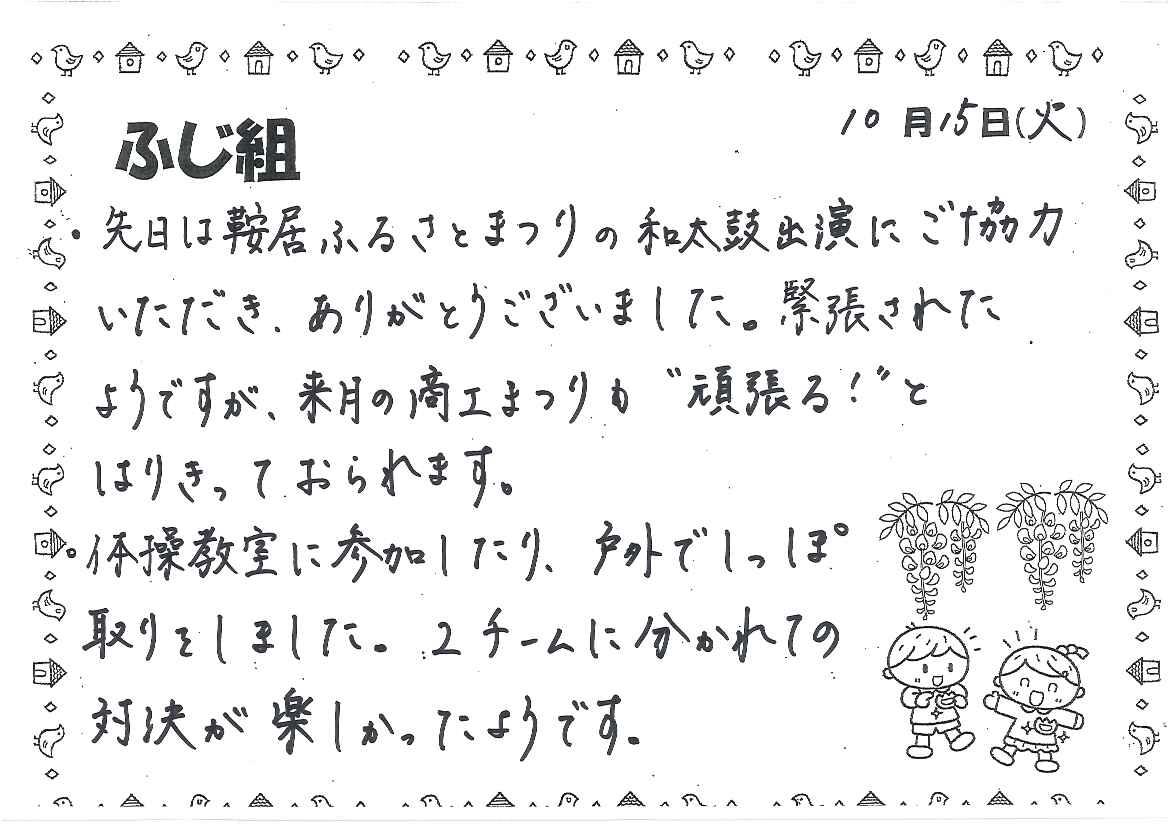 10月15日(火)
ふじ組
・先日は鞍居ふるさとまつりの和太鼓出演にご協力
いただき、ありがとうございました。緊張された
ようですが、来月の商工まつりも"頑張る!"と
はりきっておられます。
・体操教室に参加したり、戸外でしっぽ
取りをしました。2チームに分かれての
対決が楽しかったようです。